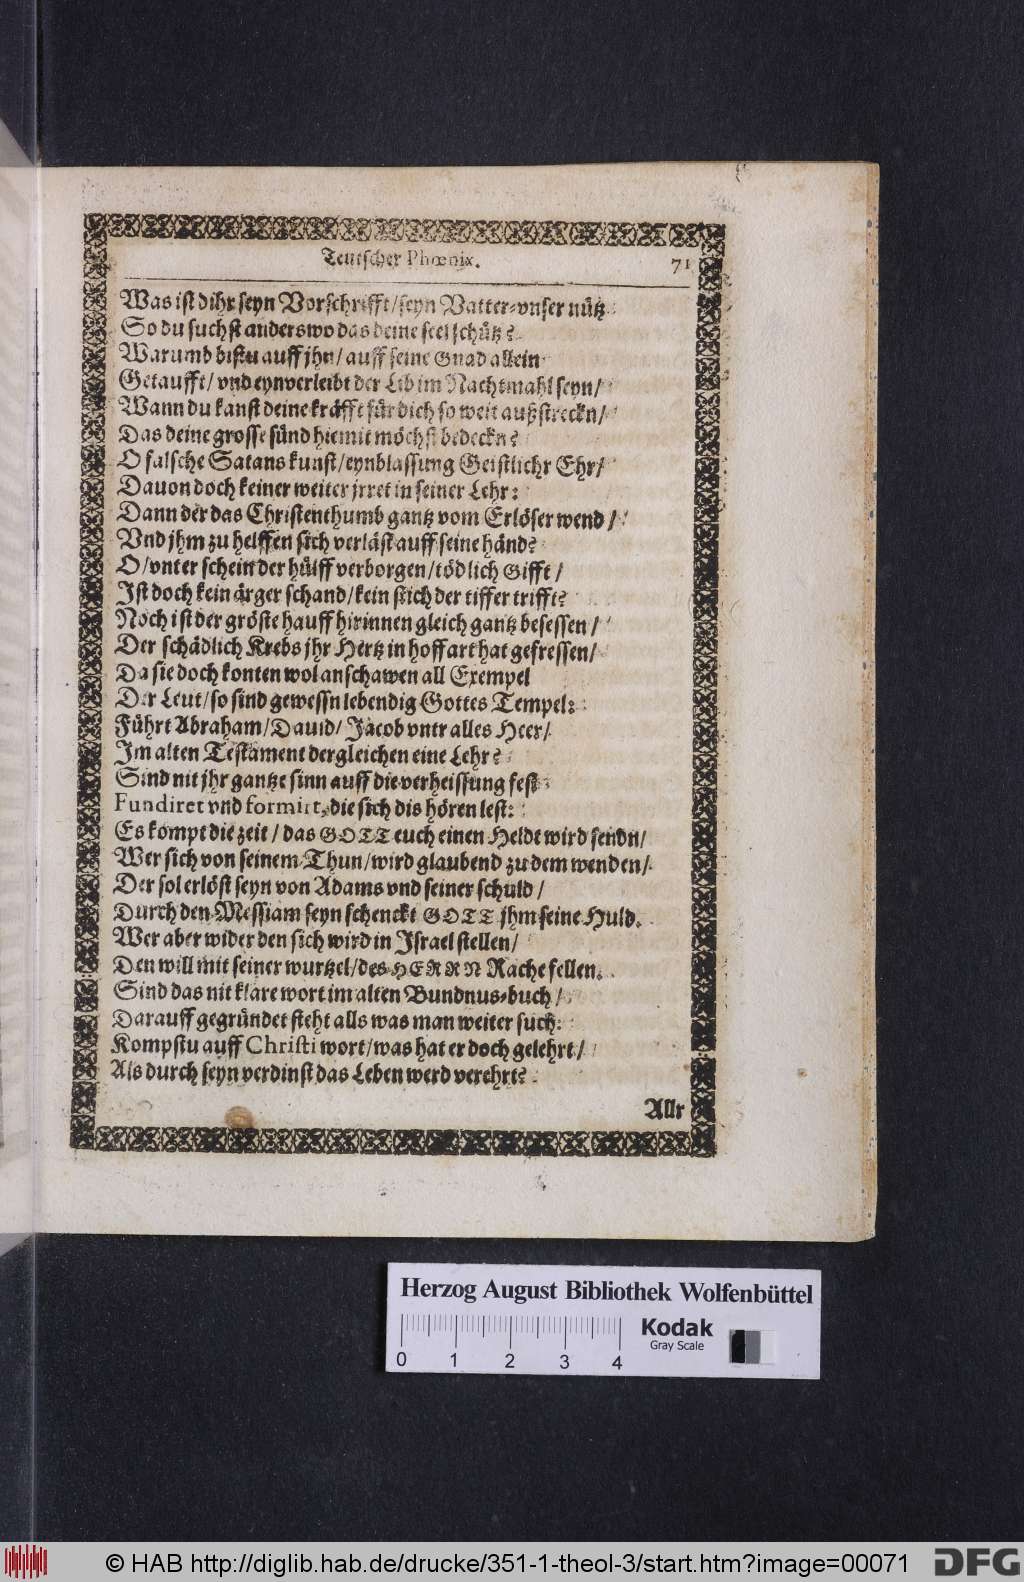 Teutscher Phœnix. 71
Was ist dihr seyn Vorschrifft/seyn Vatter-vnser nütz
So du suchst anderswo das deine seel schütz?
Warumb bistu auff jhn/ auff seine Gnad allein
Getaufft/ vnd eynverleibt der Lib im Nachtmahl seyn/
Wann du kanst deine kräfft für dich so weit außstreckn/
Das deine grosse sünd hiemit möchst bedeckn?
O falsche Satans kunst/eynblassung Geistlichr Ehr/
Dauon doch keiner weiter jrret in seiner Lehr:
Dann der das Christenthumb gantz vom Erlöser wend/
Vnd jhm zu helffen sich verläst auff seine händ?
O/vnter schein der hülff verborgen/tödlich Gifft/
Ist doch kein ärger schand/kein stich der tiffer trifft?
Noch ist der gröste hauff hirinnen gleich gantz besessen/
Der schädlich Krebs jhr Hertz in hoffart hat gefressen/
Da sie doch konten wol anschawen all Exempel
Der Leut/so sind gewessn lebendig Gottes Tempel:
Führt Abraham/Dauid/ Jacob vntr alles Heer/
Im alten Testament dergleichen eine Lehr?
Sind nit jhr gantze sinn auff die verheissung fest
Fundiret vnd formirt, die sich dis hören lest:
Es kompt die zeit/ das GOTT euch einen Heldt wird sendn/
Wer sich von seinem Thun/wird glaubend zu dem wenden/
Der sol erlöst seyn von Adams vnd seiner schuld/
Durch den Messiam seyn schenckt GOTT jhm seine Huld.
Wer aber wider den sich wird in Israel stellen/
Den will mit seiner wurtzel/des HERRN Rache fellen.
Sind das nit klare wort im alten Bundnus-buch/
Darauff gegründet steht alls was man weiter such:
Kompstu auff Christi wort/was hat er doch gelehrt/
Als durch seyn verdinst das Leben werd verehrt?
Allr
Herzog August Bibliothek Wolfenbüttel
Kodak
Gray Scale
0 1 2 3 4
© HAB http://diglib.hab.de/drucke/351-1-theol-3/start.htm?image=00071
DFG